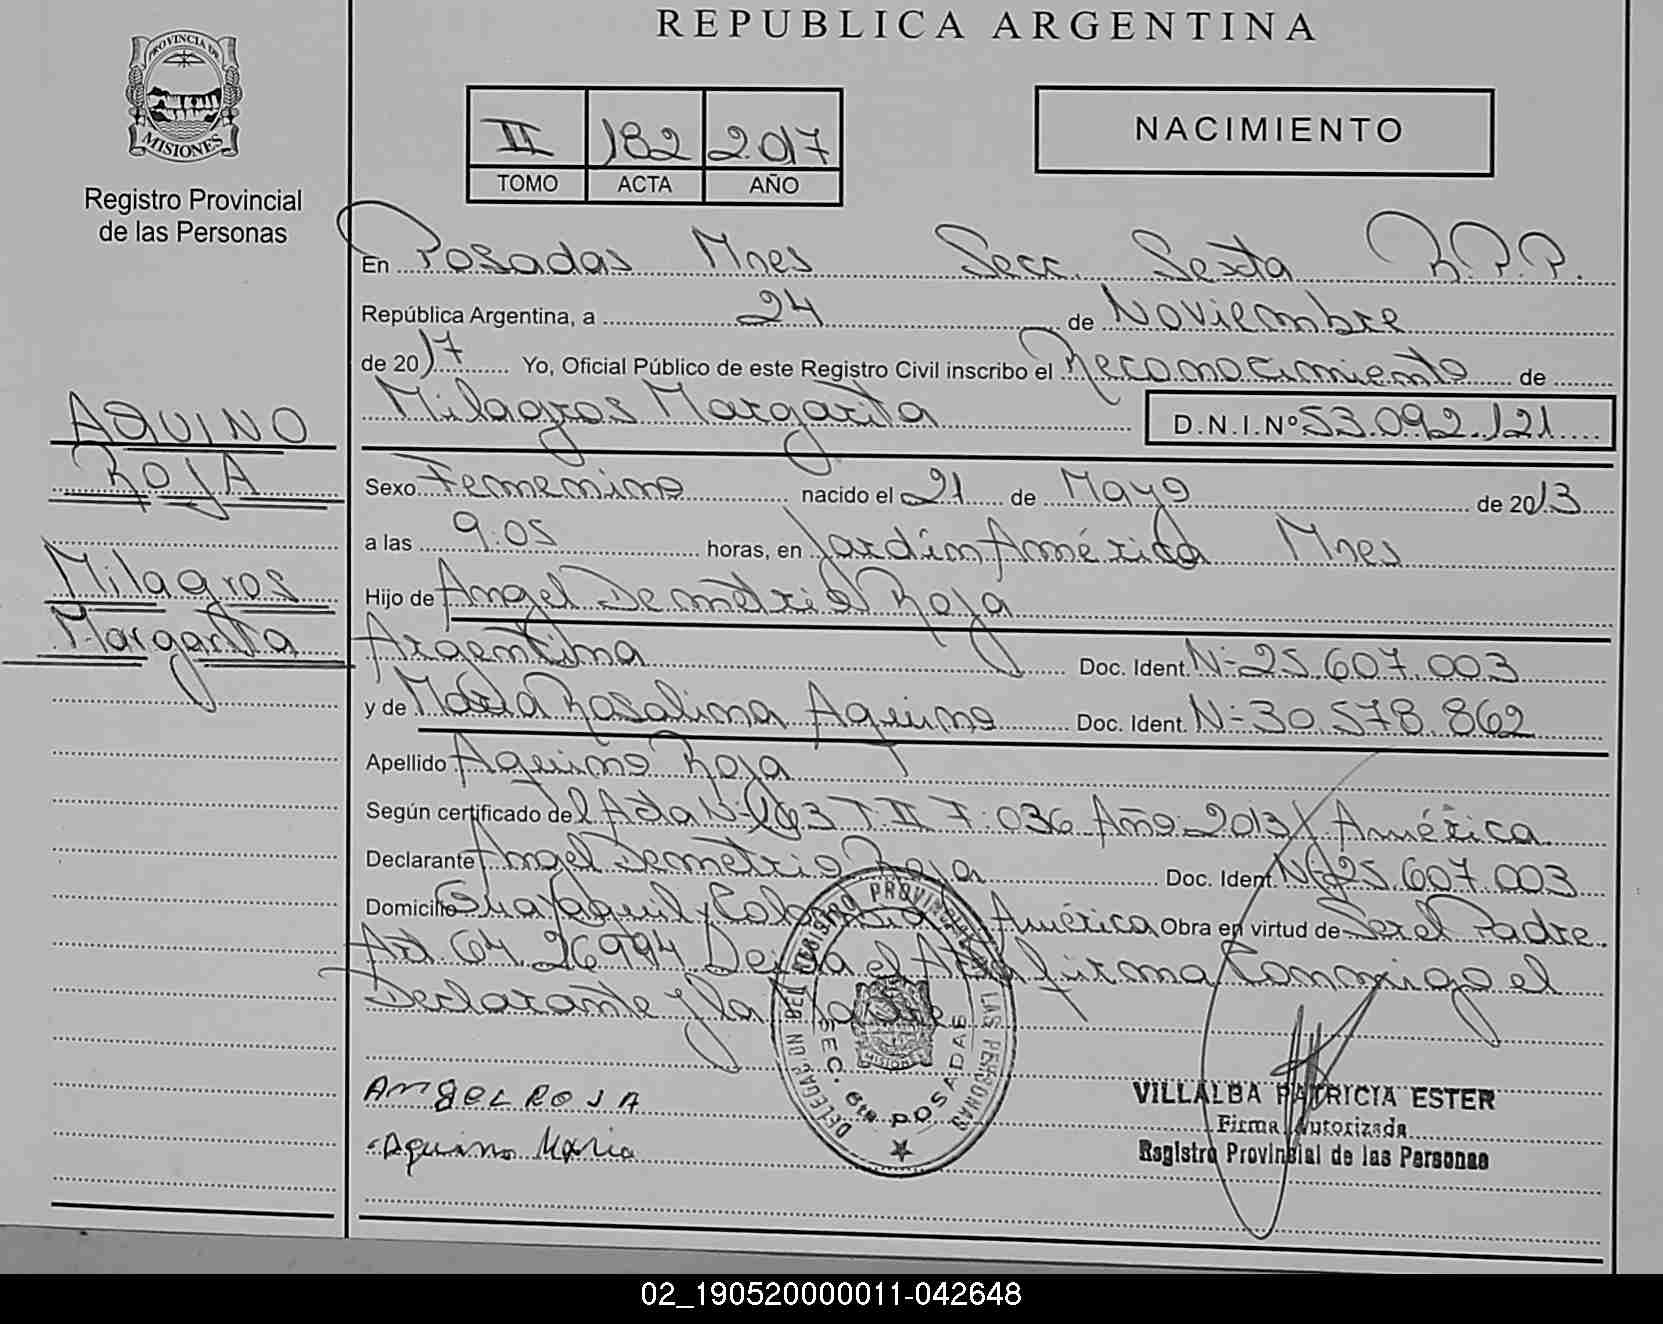 REPUBLICA ARGENTINA
PROVINCIA DE
MISIONES
Registro Provincial
de las Personas
II 182 2017
TOMO ACTA AÑO
NACIMIENTO
En Posadas Mnes Secc. Sexta R.P.P.
República Argentina, a 24 de Noviembre
de 2017 Yo, Oficial Público de este Registro Civil inscribo el Reconocimiento de
Milagros Margarita D.N.I.Nº 53.092.121
AQUINO
ROJA
Milagros
Margarita
Sexo Femenino nacido el 21 de Mayo de 2013
a las 9:05 horas, en Jardín América Mnes
Hijo de Angel Demetrio Roja
Argentina Doc. Ident. Nº 25.607.003
y de María Rosalina Aquino Doc. Ident. Nº 30.578.862
Apellido Aquino Roja
Según certificado del Acta Nº 163 T II F: 036 Año: 2013 J. América
Declarante Angel Demetrio Roja Doc. Ident. Nº 25.607.003
Domicilio Guayaquil y Colombia J. América Obra en virtud de Ser el Padre
Art. 64. 26994 Leída el Acta firma Conmigo el
Declarante y la Madre
ANGEL ROJA
Aquino Maria
DELEGACION DEL REGISTRO PROVINCIAL DE LAS PERSONAS
SEC. 6ta POSADAS
MISIONES
VILLALBA PATRICIA ESTER
Firma Autorizada
Registro Provincial de las Personas
02_190520000011-042648